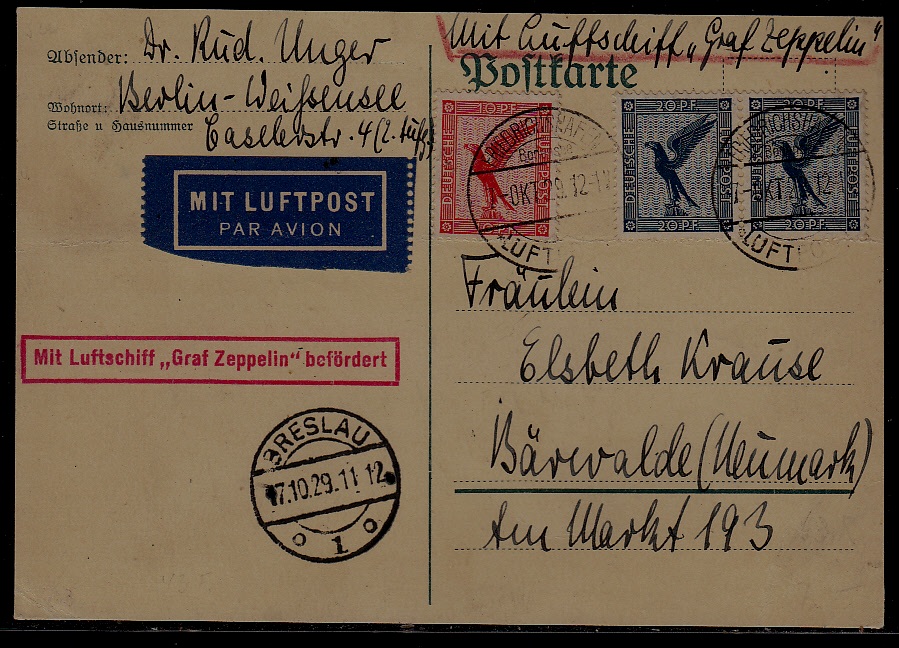 Absender: Dr. Rud. Unger
Wohnort: Berlin-Weißensee
Straße u Hausnummer
Caselerstr. 4 (2. Aufg.)
Mit Luftschiff „Graf Zeppelin"
Postkarte
MIT LUFTPOST
PAR AVION
10 PF
DEUTSCHE
LUFTPOST
20 PF
DEUTSCHE
20 PF
20 PF
DEUTSCHE
LUFTPOST
20 PF
FRIEDRICHSHAFEN
OKT 29.12-1
LUFTPOST
Mit Luftschiff „Graf Zeppelin" befördert
BRESLAU
17.10.29.11-12
1
Fräulein
Elsbeth Krause
Bärwalde (Neumark)
Am Markt 193